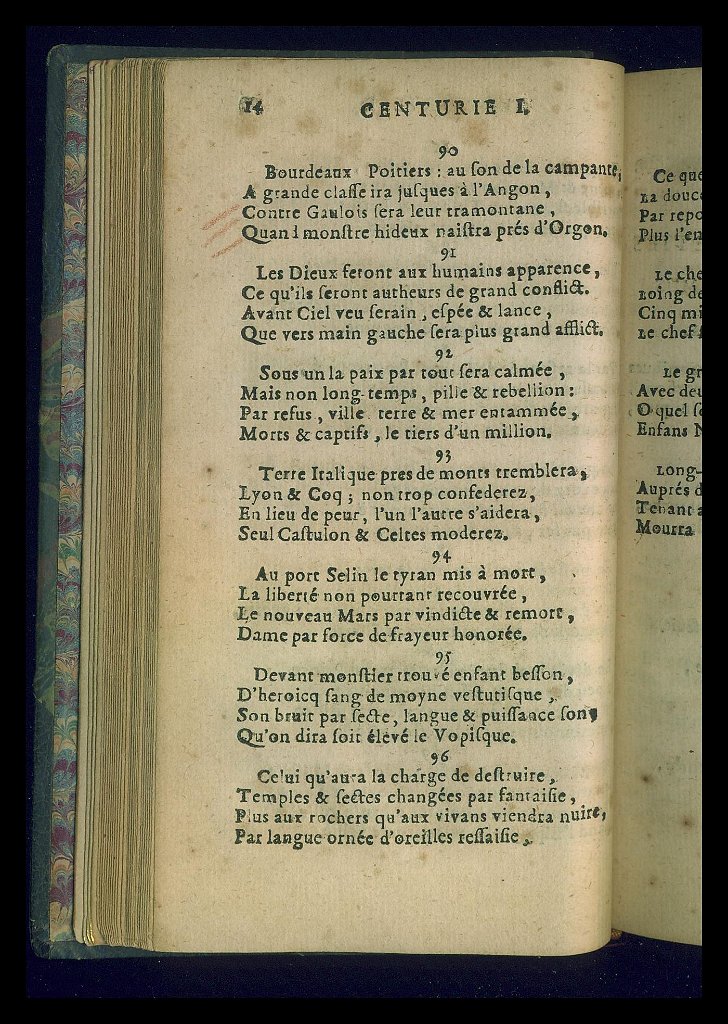 14 CENTURIE I.
90
Bourdeaux Poitiers : au ſon de la campante,
A grande claſſe ira juſques à l'Angon,
Contre Gaulois ſera leur tramontane,
Quand monſtre hideux naiſtra prés d'Orgon.
91
Les Dieux feront aux humains apparence,
Ce qu'ils ſeront autheurs de grand conflict.
Avant Ciel veu ſerain, eſpée & lance,
Que vers main gauche ſera plus grand afflict.
92
Sous un la paix par tout ſera calmée,
Mais non long-temps, pille & rebellion :
Par refus, ville terre & mer entammée,
Morts & captifs, le tiers d'un million.
93
Terre Italique pres de monts tremblera,
Lyon & Coq ; non trop confederez,
En lieu de peur, l'un l'autre s'aidera,
Seul Caſtulon & Celtes moderez.
94
Au port Selin le tyran mis à mort,
La liberté non pourtant recouvrée,
Le nouveau Mars par vindicte & remort,
Dame par force de frayeur honorée.
95
Devant monſtier trouvé enfant beſſon,
D'heroicq ſang de moyne veſtutiſque,
Son bruit par ſecte, langue & puiſſance ſon,
Qu'on dira ſoit élevé le Vopiſque.
96
Celui qu'aura la charge de deſtruire,
Temples & ſectes changées par fantaiſie,
Plus aux rochers qu'aux vivans viendra nuire,
Par langue ornée d'oreilles reſſaiſie,
Ce que
La douc
Par repo
Plus l'en
Le che
Loing de
Cinq mi
Le chef
Le gr
Avec deu
O quel ſ
Enfans N
Long-
Auprés d
Tenant a
Mourra